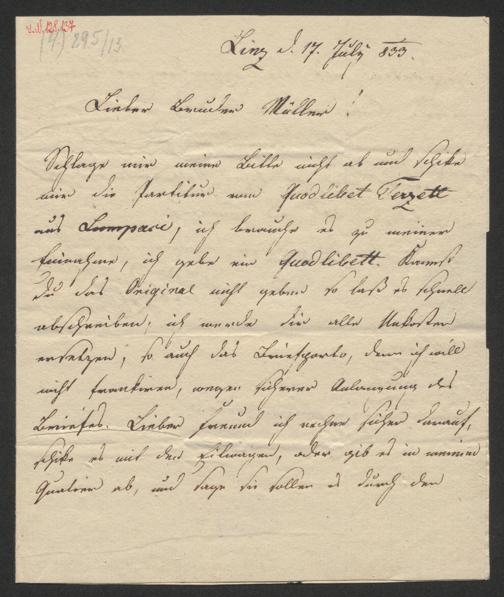 I.N. 128.137
(4.) 295/13.
Linz d. 17. July 833.
Lieber Bruder Müller!
Schlage mir meine Bitte nicht ab und schike
mir die Partitur vom Quodlibet Terzett
aus Lumpaci, ich brauche es zu meiner
Einnahme, ich gebe ein Quodlibett. Kannst
Du das Original nicht geben so laß es schnell
abschreiben, ich werde dir alle Unkosten
ersetzen, so auch das Briefporto, denn ich will
nicht frankiren, wegen sicherer Anlangung des
Briefes. Lieber Freund ich rechne sicher darauf,
schike es mit den Eilwagen, oder gib es in meinem
Quatier ab, und sage sie sollen es durch den